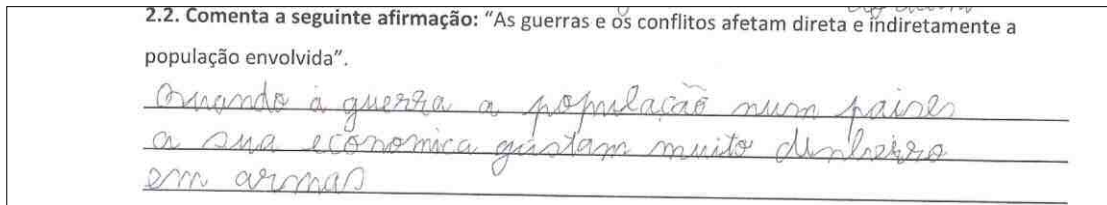 2.2. Comenta a seguinte afirmação: “As guerras e os conflitos afetam direta e indiretamente a
população envolvida”.
Quando à guerra a população num paises
a sua económica gastam muito dinheiro
em armas